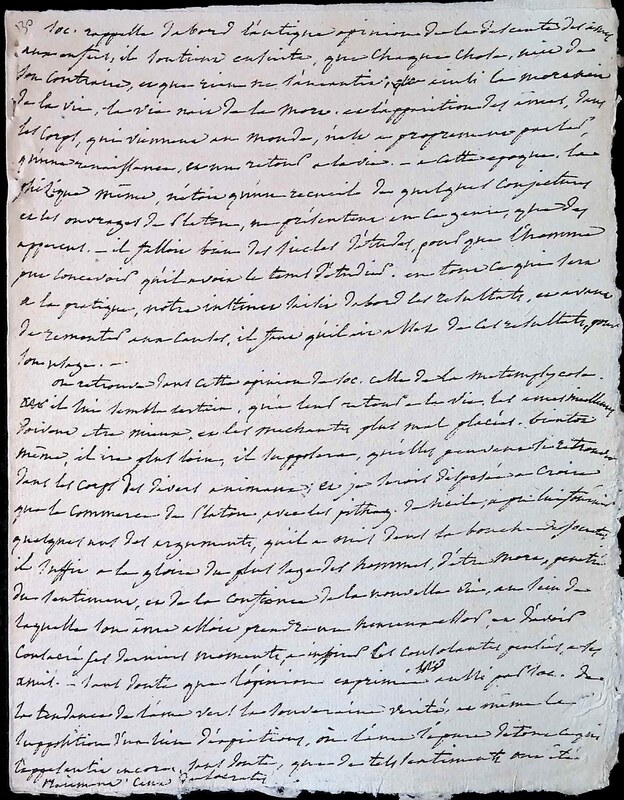 130
Soc. rappelle d'abord l'antique opinion de la descente des âmes
aux enfers, il soutient ensuite, que chaque chose, nait de
son contraire, et que rien ne s'anéantit, ainsi la mort nait
de la vie, la vie nait de la mort. et l'apparition des âmes, dans
les corps, qui viennent au monde, n'est a proprement parler,
qu'une renaissance, et un retour a la vie. — a cette époque. la
phisique même, n'etoit qu'un recueil de quelques conjectures
et les ouvrages de Platon, ne présentent en ce genre, que des
apperçus. — il falloit bien des siecles d'études, pour que l'homme
put concevoir qu'il avoit le tems d'étudier. en tout ce qui sert
a la pratique, notre instinct saisit d'abord les resultats, et avant
de remonter aux causes, il faut qu'il ait assez de ces résultats, pour
son usage. —
on retrouve dans cette opinion de Soc. celle de la metempsycose.
il lui semble certain, qu'a leur retour a la vie, les ames meilleures
doivent etre mieux, et les mechantes plus mal placées. bientot
même, il ira plus loin, il supposera, qu'elles peuvent se retrouver
dans les corps des divers animaux; et je serois disposée a croire
que le commerce de Platon, avec les pithag. de Sicile, a pu lui fournir
quelques uns des arguments, qu'il a mis dans la bouche de Socrate,
il suffit a la gloire du plus sage des hommes, d'être mort, penetré
du sentiment, et de la confiance de la nouvelle vie, au sein de
laquelle son âme alloit prendre un heureux essor, et d'avoir
consacré ses derniers moments, a inspirer les consolantes pensées, a ses
amis. — sans doute que l'opinion exprimée aussi par Soc. de
la tendance de l'âme vers la souveraine verité, et même la
supposition d'un lieu d'expiations, où l'âme se pure de tout ce qui
l'appesantit encore, sans doute, que de tels sentiments ont été
ceux de Socrate